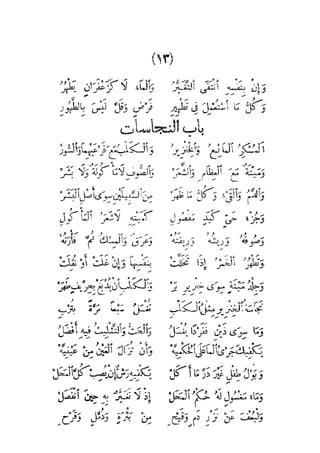 (١٣)
وَإِنْ بِنَفْسِهِ انْتَفَى التَّغَيُّرُ وَالْمَاءُ لَا كَزَعْفَرَانٍ يَطْهُرُ
وَكُلُّ مَا اسْتُعْمِلَ فِي تَطْهِيرِ فَرْضٍ وَقَلَّ لَيْسَ بِالطَّهُورِ
باب النجاسات
الْمُسْكِرُ الْمَائِعُ وَالْخِنْزِيرُ وَالْكَلْبُ مَعْ فَرْعَيْهِمَا وَالسُّورُ
وَمَيْتَةٌ مَعَ الْعِظَامِ وَالشَّعَرْ وَالصُّوفِ لَا مَأْكُولَةٌ وَلَا بَشَرْ
وَالدَّمُ وَالْقَيْءُ وَكُلُّ مَا ظَهَرْ مِنَ السَّبِيلَيْنِ سِوَى أَصْلِ الْبَشَرْ
وَجُزْءُ حَيٍّ كَيَدٍ مَفْصُولِ كَمَيْتِهِ لَا شَعَرُ الْمَأْكُولِ
وَصُوفُهُ وَرِيشُهُ وَرِيقَتُهُ وَعَرَقٌ وَالْمِسْكُ ثُمَّ فَأْرَتُهُ
وَتَطْهُرُ الْخَمْرُ إِذَا تَخَلَّلَتْ بِنَفْسِهَا وَإِنْ غَلَتْ أَوْ نُقِلَتْ
وَجِلْدُ مَيْتَةٍ سِوَى خِنْزِيرِ بَرْ وَالْكَلْبِ إِنْ يُدْبَغْ بِحِرِّيفٍ طَهَرْ
نَجَاسَةُ الْخِنْزِيرِ مِثْلُ الْكَلْبِ تُغْسَلُ سَبْعًا مَرَّةً بِتُرْبِ
وَمَا سِوَى ذَيْنِ فَفَرْدًا يُغْسَلُ وَالْحَتُّ وَالتَّثْلِيثُ فِيهِ أَفْضَلُ
يَكْفِيكَ جَرْيُ الْمَا عَلَى الْحُكْمِيَّهْ وَأَنْ تُزَالَ الْعَيْنُ مِنْ عَيْنِيَّهْ
وَبَوْلُ طِفْلٍ غَيْرَ دَرٍّ مَا أَكَلْ يَكْفِيهِ رَشٌّ إِنْ يُصِبْ كُلَّ الْمَحَلْ
وَمَاءُ مَغْسُولٍ لَهُ حُكْمُ الْمَحَلْ إِذْ لَا تَغَيُّرٌ بِهِ حِينَ انْفَصَلْ
وَلْيُعْفَ عَنْ نَزْرِ دَمٍ وَقَيْحِ مِنْ بَثْرَةٍ وَدُمَّلٍ وَقَرْحِ